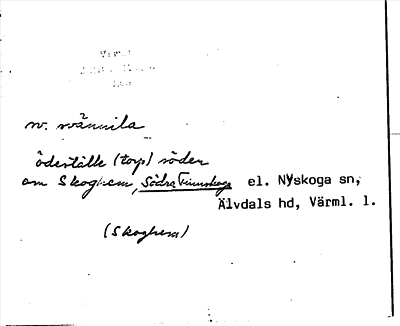 Värml
w. wännila
ödeställe (torp) söder
om Skoghem, Södra Finnskoga el. Nyskoga sn,
Älvdals hd, Värml. l.
(Skoghem)